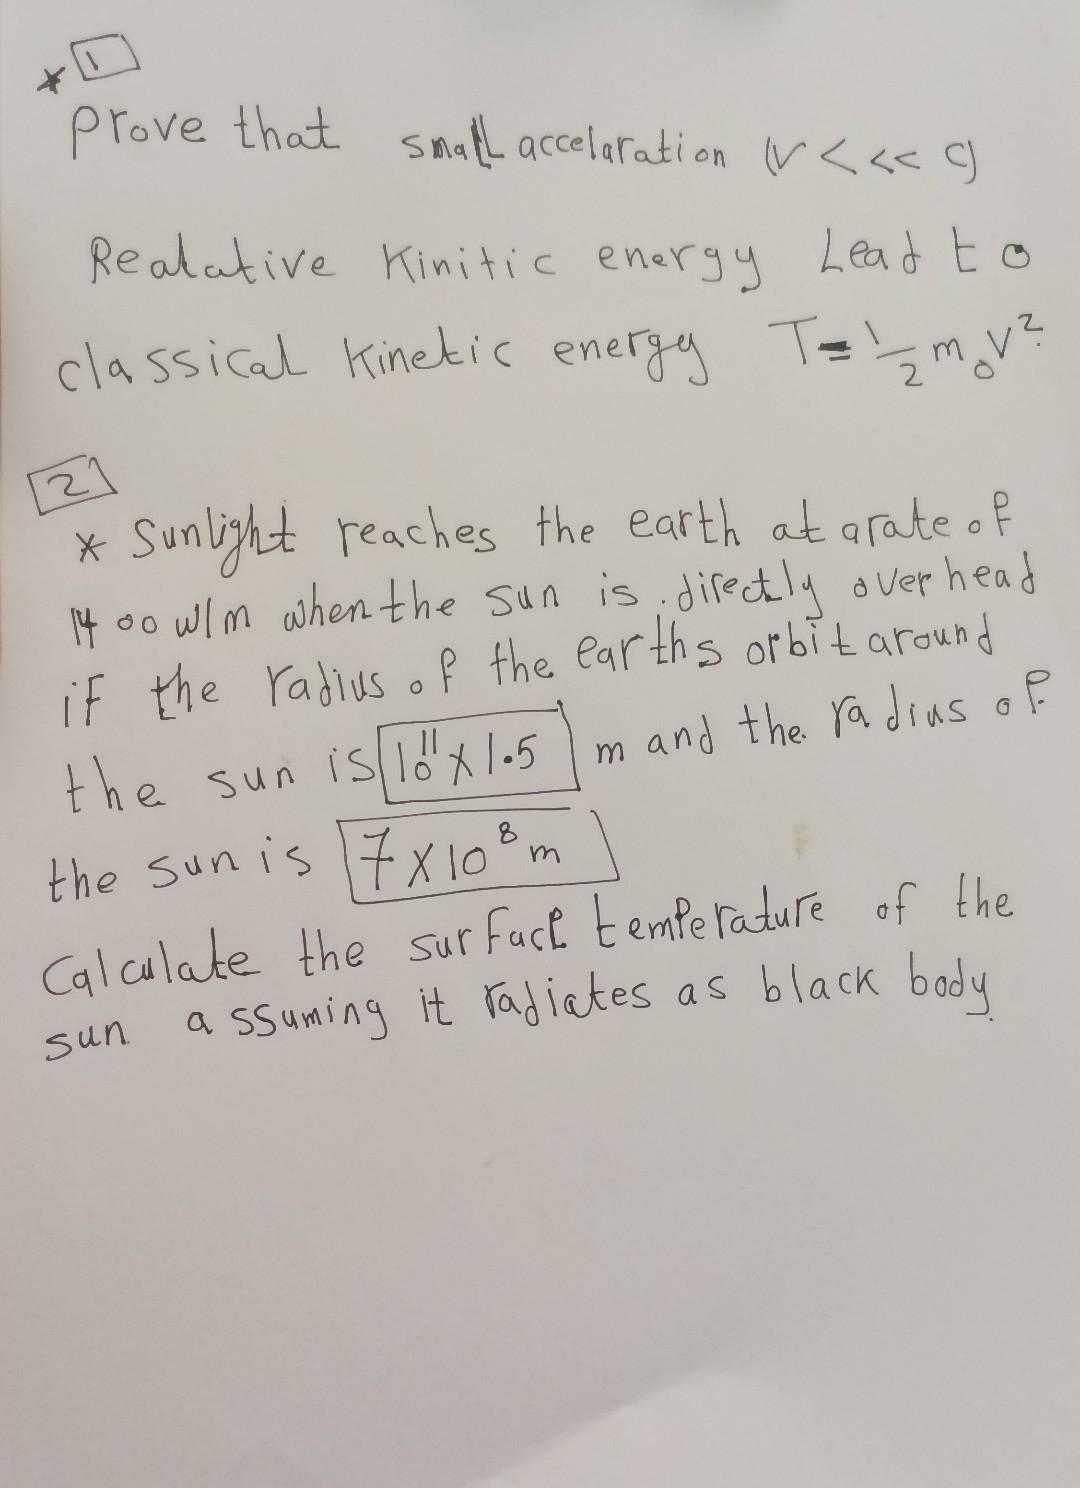 * 1
Prove that small accelaration (v < << c)
Realative Kinitic energy Lead to
classical Kinetic energy T = 1/2 m₀v²
2
* Sunlight reaches the earth at a rate of
1400 w/m when the sun is directly over head
if the radius of the earths orbit around
the sun is 10¹¹ x 1.5 m and the radius of
the sun is 7 x 10⁸ m
Calculate the surface temperature of the
sun assuming it radiates as black body.